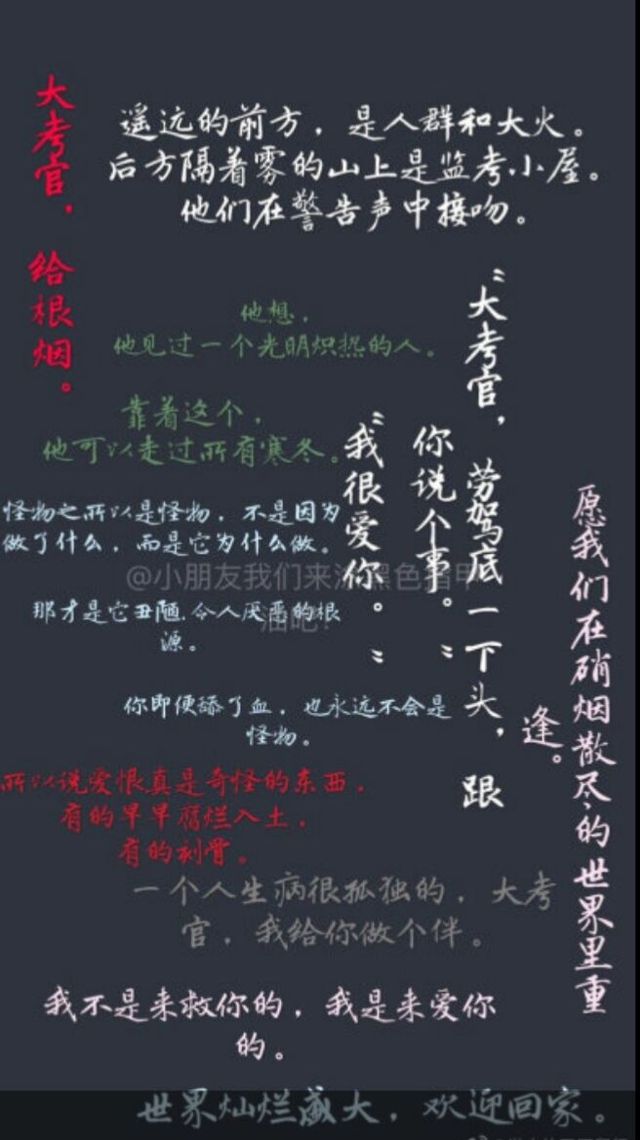 大考官，给根烟。
遥远的前方，是人群和大火。
后方隔着雾的山上是监考小屋。
他们在警告声中接吻。
他想，
他见过一个光明炽热的人。
靠着这个，
他可以走过所有寒冬。
“大考官，劳驾底一下头，跟
你说个事。”
“我很爱你。”
怪物之所以是怪物，不是因为
做了什么，而是它为什么做。
@小朋友我们来涂黑色指甲
油吧！
那才是它丑陋，令人厌恶的根
源。
你即便舔了血，也永远不会是
怪物。
愿我们在硝烟散尽的世界里重
逢。
所以说爱恨真是奇怪的东西，
有的早早腐烂入土，
有的刻骨。
一个人生病很孤独的，大考
官，我给你做个伴。
我不是来救你的，我是来爱你
的。
世界灿烂盛大，欢迎回家。